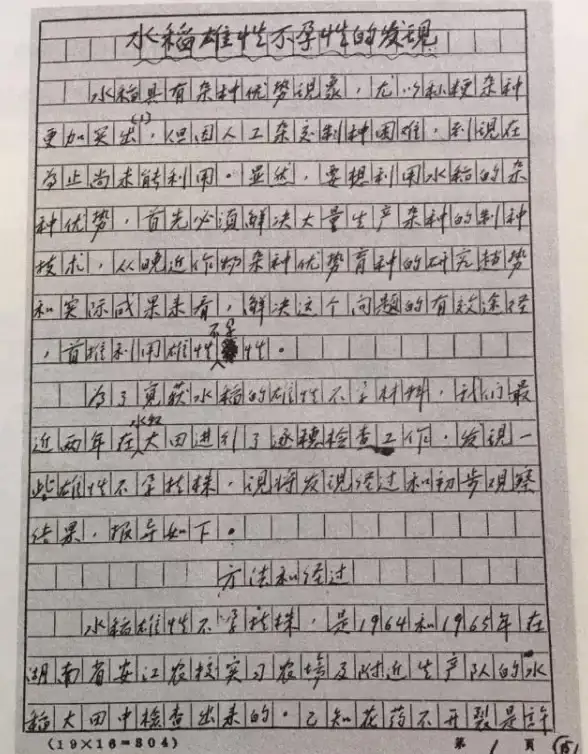 水稻雄性不孕性的发现
水稻具有杂种优势现象，尤以籼粳杂种
更加突出(1)，但因人工杂交制种困难，到现在
为止尚未能利用。显然，要想利用水稻的杂
种优势，首先必须解决大量生产杂种的制种
技术，从晚近作物杂种优势育种的研究趋势
和实际成果来看，解决这个问题的有效途径
，首推利用雄性不孕性。
为了觅获水稻的雄性不孕材料，我们最
近两年在水稻大田进行了逐穗检查工作，发现一
些雄性不孕植株，现将发现经过和初步观察
结果，报导如下。
方法和经过
水稻雄性不孕植株，是1964和1965年在
湖南省安江农校实习农场及附近生产队的水
稻大田中检查出来的。已知花药不开裂是许
(19×16=304) 第 1 页